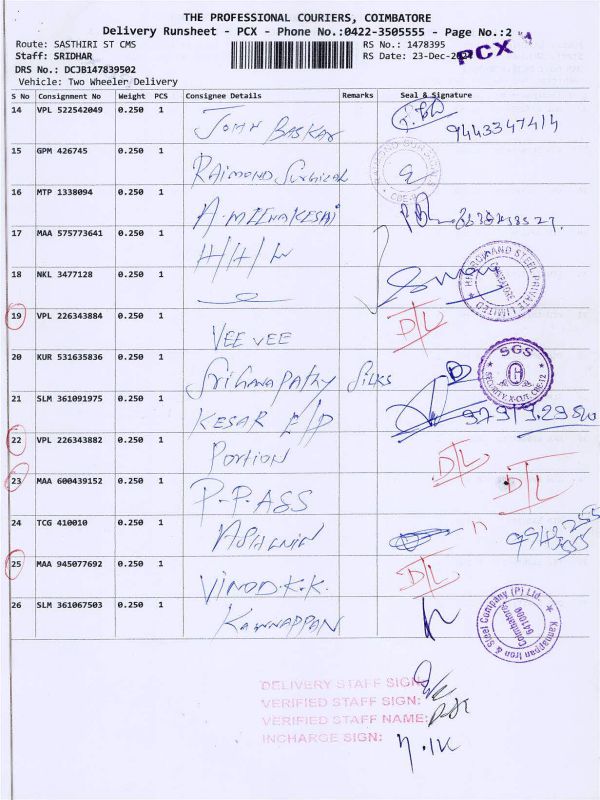 THE PROFESSIONAL COURIERS, COIMBATORE
Delivery Runsheet - PCX - Phone No.:0422-3505555 - Page No.:2
PCX
Route: SASTHIRI ST CMS RS No.: 1478395
Staff: SRIDHAR RS Date: 23-Dec-
DRS No.: DCJB147839502
Vehicle: Two Wheeler Delivery
S No Consignment No Weight PCS Consignee Details Remarks Seal & Signature
14 VPL 522542049 0.250 1 JOHN BASKAR
15 GPM 426745 0.250 1 RAIMOND SURGICAL
16 MTP 1338094 0.250 1 A.MEENAKESHI
17 MAA 575773641 0.250 1
18 NKL 3477128 0.250 1 STEEL PRIVATE LIMITED COIMBATORE
19 VPL 226343884 0.250 1 VEE VEE D/L
20 KUR 531635836 0.250 1 Srihanapathy SILKS SGS G SECURITY
21 SLM 361091975 0.250 1 KESAR E/P
22 VPL 226343882 0.250 1 PORTION D/L
23 MAA 600439152 0.250 1 P.P.ASS D/L
24 TCG 410010 0.250 1 n
25 MAA 945077692 0.250 1 VINOD.K.K. D/L
26 SLM 361067503 0.250 1 KANNAPPAN Kannappan Iron & Steel Company (P) Ltd. Coimbatore
DELIVERY STAFF SIGN:
VERIFIED STAFF SIGN:
VERIFIED STAFF NAME:
INCHARGE SIGN: